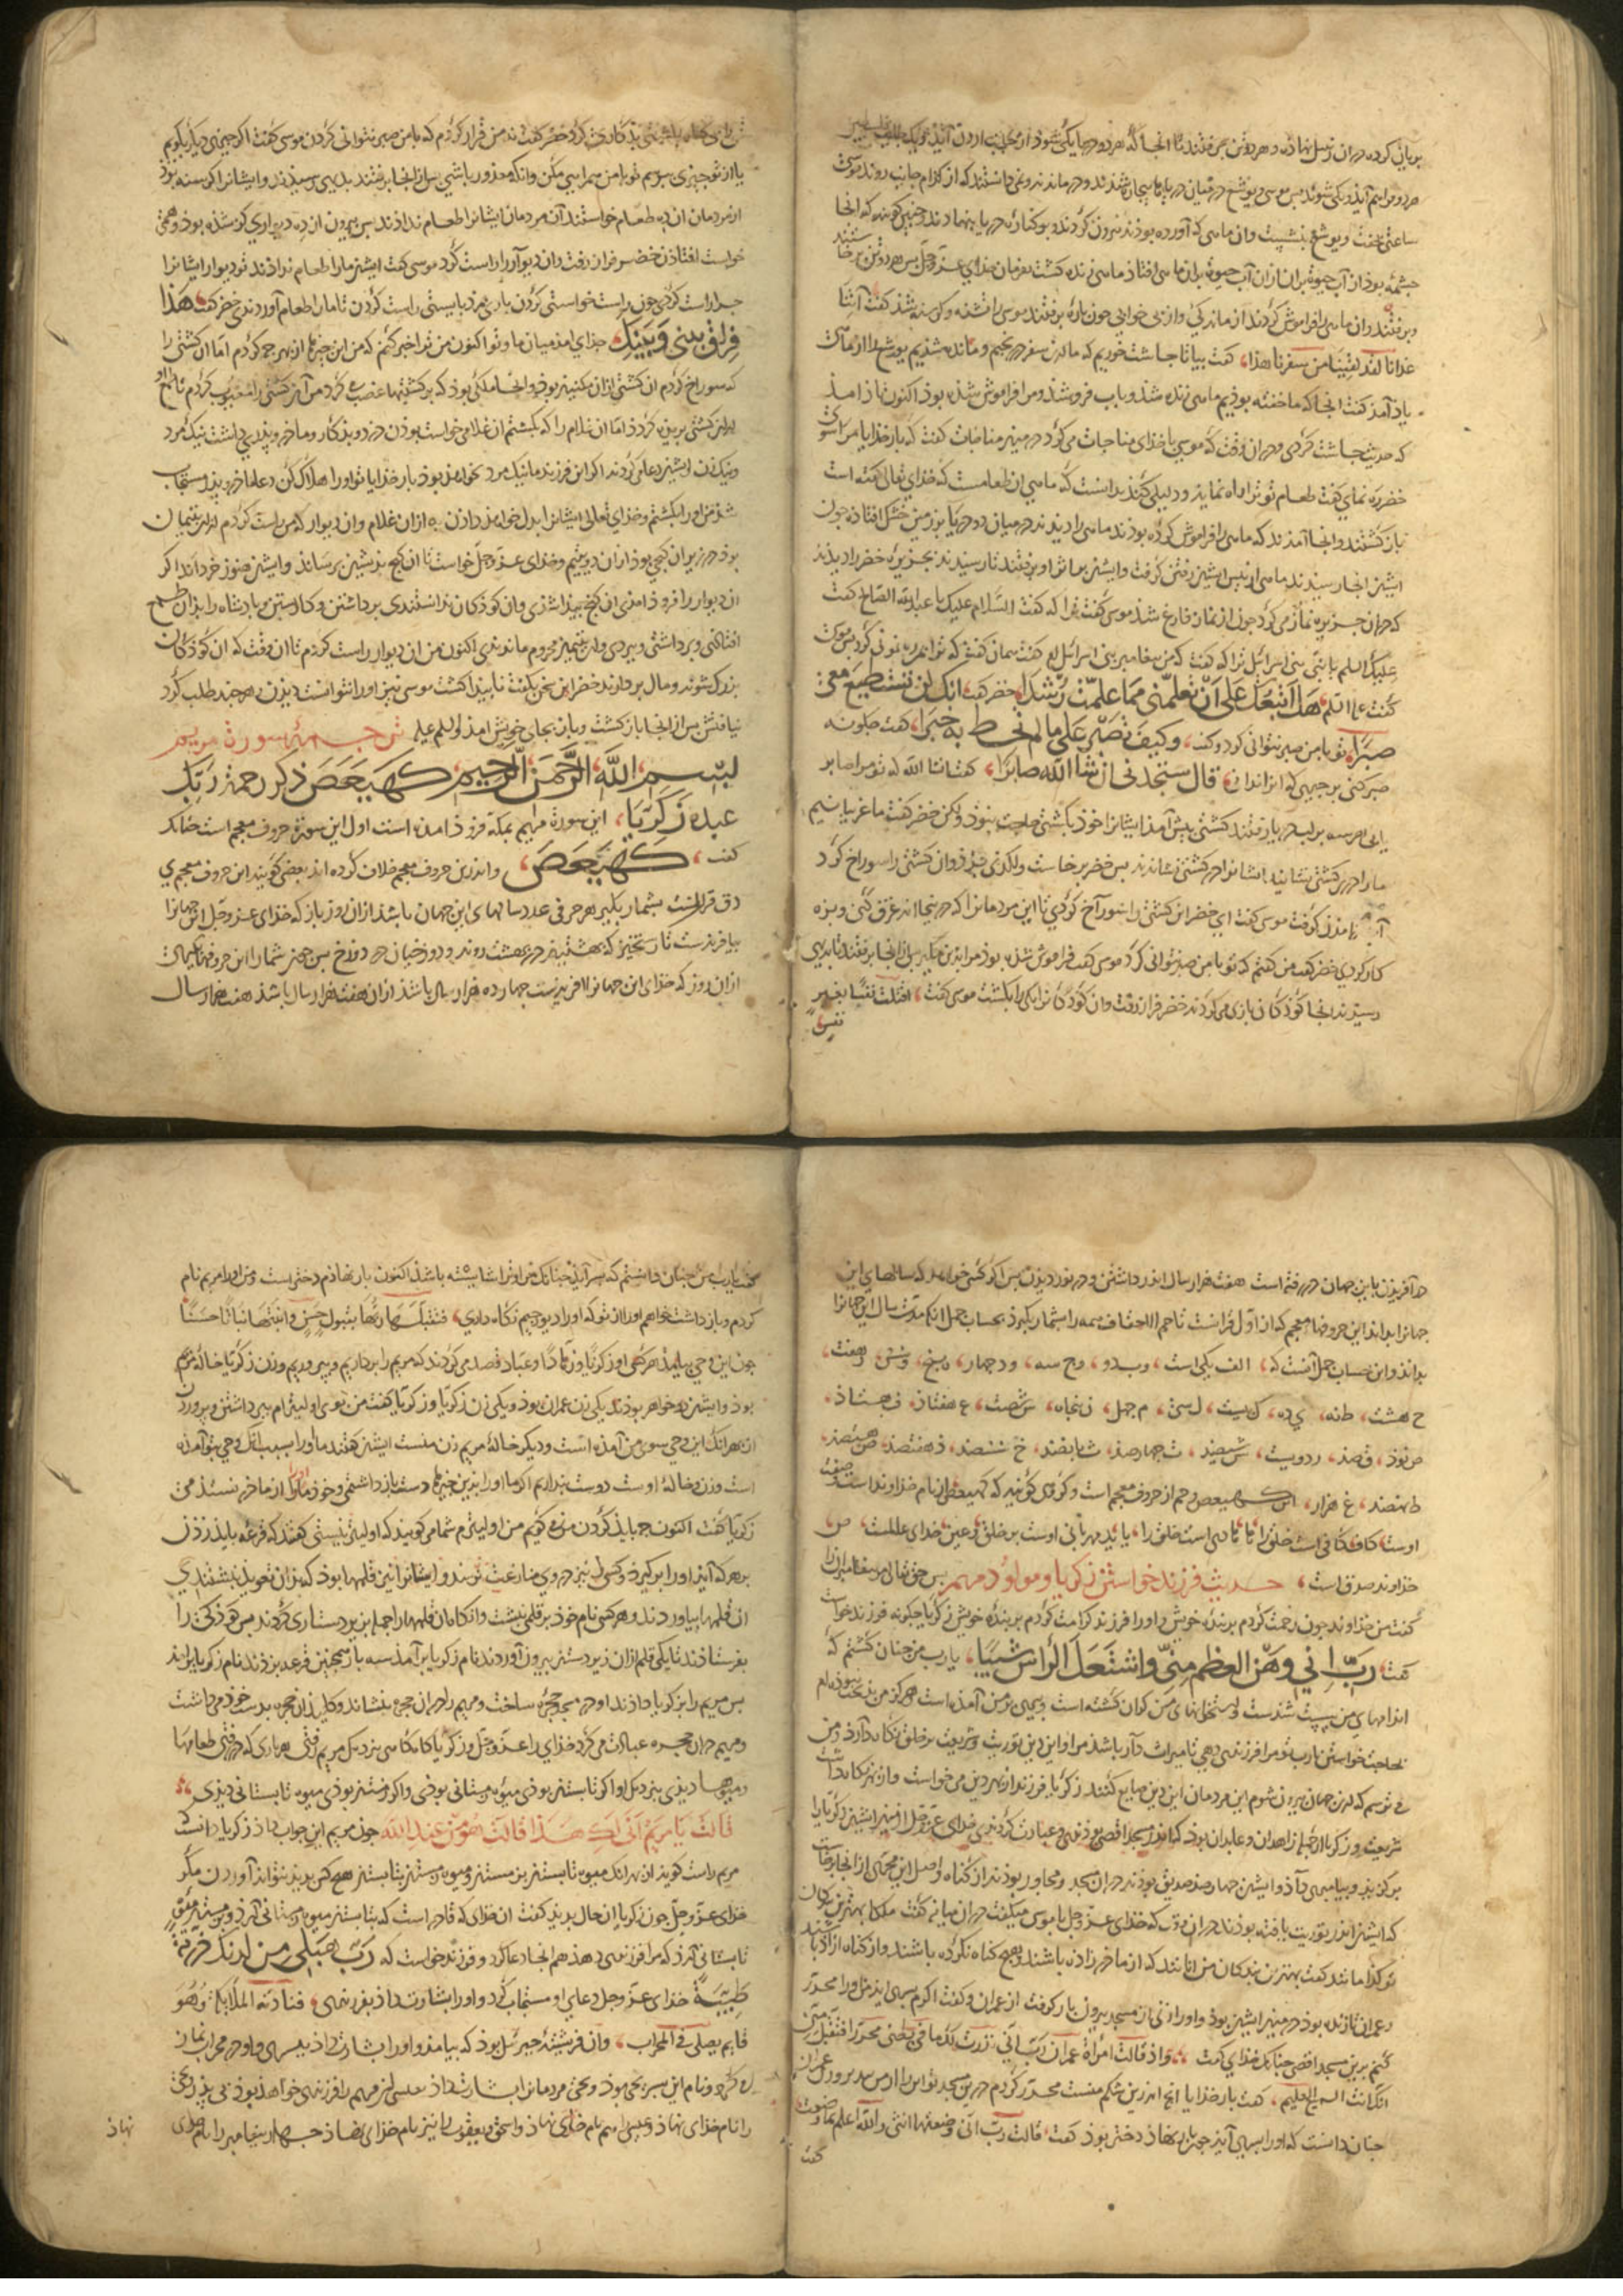 بریان کرده در ان زنبیل نهاده و هر دو تن می رفتند تا انجا که هر دو دریا یکی شود
هر دو فراهم آیذ و یکی شوند بس موسی و یوشع در میان دریا شذند و در ماندند و نمی دانستند که از کذام جانب روند موسی
ساعتی بخفت و یوشع بنشست وان ماهی که آورده بوذند بیرون کردند و بر کناره دریا بنهاذند و جنین کویند که انجا
جشمه بوذ از آب حیوة بران ازان آب حیوة بران ماهی افتاذ ماهی زنده کشت بفرمان خذای عزّ و جلّ بس هر دو تن برخاستند
و برفتند وان ماهی را فراموش کردند از ماندکی و از بی خوابی جون باره برفتند موسی را تشنه و کرسنه شذ کفت آتِنَا
غدانا لقد لقینا من سفرنا هذا، کفت بیا تا جاشت خوریم که ما درین سفر در نجیم و مانده شذیم یوشع را از ماهی
یاذ آمذ کفت انجا که ما خفته بوذیم ماهی زنده شذ و باب فرو شذ و مرا فراموش شذه بوذ اکنون یاذ امذ
که حدیث جاشت کردی و در ان وقت که موسی با خذای مناجات می کرد در میان مناجات کفت که بار خذایا مرا سوی
خضر ره نمای کفت طعام تو ترا راه نمایذ و دلیلی کنذ بدانست که ماهی ان طعامست که خذای تعالی کفته است
باز کشتند و انجا آمذند که ماهی را فراموش کرده بوذند ماهی را دیذند در میان دو دریا بر زمین خشک افتاذه جون
ایشان انجا رسیذند ماهی از بیش ایشان رفتن کرفت و ایشان بر اثر او برفتند تا رسیذند بجزیره خضر را دیذند
که در ان جزیره نماز می کرد جون از نماز فارغ شذ موسی کفت السّلام علیک یا عبد الله الصّالح کفت
علیک السلم یا نبی بنی اسرائیل ترا که کفت که من بیغامبر بنی اسرائیل ام کفت همان کفت که ترا بمن ره نمونی کرد بس موسی
کفت علیه السلم، هَل اَتّبعُکَ عَلی اَن تُعلّمنی ممّا عُلّمتَ رُشدًا، خضر کفت انّک لن تستطیعَ مَعی
صبرًا، تو با من صبر نتوانی کرد و کفت، وکیفَ تَصبرُ علی ما لم تحط به خبرًا، کفت جکونه
صبر کنی بر جیزی که ان ندانی، قال ستجدنی ان شا الله صابرًا، کفت انشا الله که تو مرا صابر
یابی هر سه بر لب دریا رفتند کشتی بیش آمذ ایشانرا خوذ بکشتی حاجت نبوذ ولکن خضر کفت ما غریبانیم
ما را در کشتی نشانیذ ایشانرا در کشتی نشاندند بس خضر برخاست و لکدی بزذ وان کشتی را سوراخ کرد
آب در امذن کرفت موسی کفت ای خضر این کشتی را سوراخ کردی تا این مردمانرا که در نجا اند غرق کنی و بزه
کار کردی خضر کفت من کفتم که تو با من صبر نتوانی کرد موسی کفت فراموش شذه بوذ مرا بذین مکیر بس ازانجا برفتند تا بدیهی
رسیذند انجا کوذکان بازی می کردند خضر فراز رفت وان کوذکانرا یکی را بکشت موسی کفت، اقتلت نفسًا بغیر
نفس
کرد خضر کفت نه من قرار کردم که با من صبر نتوانی کردن موسی کفت اکر جیزی دیکر بکویم
یا از تو جیزی برسم تو با من همراهی مکن وانکه معذور باشی بس ازانجا برفتند بدیهی رسیذند و ایشانرا کرسنه بوذ
از مردمان ان ده طعام خواستند آن مردمان ایشانرا طعام نداذند بس بیرون ازده دیواری کوز شذه بوذ و همی
خواست افتاذن خضر فراز رفت وان دیوار را راست کرد موسی کفت ایشان ما را طعام نداذند تو دیوار ایشانرا
جرا راست کردی جون راست خواستی کردن باری مزد بایستی راست کردن تا ما را طعام آوردندی خضر کفت، هَذا
فِراقُ بینی وَبَینِک، جذای امذ میان ما و تو اکنون من ترا خبر کنم که من این جیزها از بهر جه کردم امّا ان کشتی را
که سوراخ کردم ان کشتی ازان مسکینان بوذ و انجا ملکی بوذ که بر کشتیها غصب می کرد من آن کشتی را معیوب کردم تا طمع او
ازان کشتی بریذه کردذ امّا ان غلام را که بکشتم ان غلامی خواست بوذن دزد و بذکار و ماذر و پذری داشت نیک مرد
و نیک زن ایشان دعا می کردند اکر این فرزند ما نیک مرد نخواهذ بوذ بار خذایا تو او را هلاک کن و دعا ماذر و پذر مستجاب
شذ من او را بکشتم و خذای تعالی ایشانرا بدل خواهذ داذن به ازان غلام وان دیوار که من راست کردم ازان یتیمان
بوذ در زیر ان کنجی بوذ ازان دو یتیم و خذای عزّ و جلّ خواست تا ان کنج بذیشان برسانذ و ایشان هنوز خرد اند اکر
ان دیوار را فرو ذامذی ان کنج بیذا شذی وان کوذکان ندانستندی برداشتن و کار بستن و باذشاه را بذان طمع
افتاذی و برداشتی و ببردی وان یتیمان محروم ماندندی اکنون من ان دیوار راست کردم تا ان وقت که ان کوذکان
بزرک شوند و مال بردارند خضر این سخن بکفت نابیذا کشت موسی نیز او را نتوانست دیذن هر جند طلب کرد
نیافتش بس ازانجا باز کشت و باز بجای خویش امذ والسلم علیه ترجمهٔ سورة مریم
بسم الله الرّحمن الرّحیم، کهیعص ذکر رحمة رَبّک
عبدهُ زَکَریّا، این سورة مریم بمکّه فرو ذامذه است اول این سورة حروف معجم است جنانک
کفت، کهیعص، و اندرین حروف معجم خلاف کرده اند بعضی کویند این حروف معجم بی
در قرانست بشمار بکیر هر حرفی عدد سالهای این جهان باشذ ازان روز باز که خذای عزّ و جلّ این جهانرا
بیافریذست تا رستخیز که بهشتیان در بهشت روند و دوزخیان در دوزخ بس جون شمار این حروفها
ازان روز که خذای این جهانرا افریذست جهارده هزار سال باشذ ازان هفت هزار سال باشذ هفت هزار سال
در آفریذن با این جهان در رفته است هفت هزار سال اندر داشتن و در نوردیذن بس اکر کسی خواهذ که سالهای این
جهانرا بداند این حروفهاء معجم که از اوّل قرانست تا حم الاحقاف همه را بشمار بکیرذ بحساب جمل انکه مدّت سال این جهانرا
بداند و این حساب جمل آنست که، الف یکی است، و ب دو، و ج سه، و د جهار، ه بنج، و شش، ز هفت،
ح هشت، ط نه، ی ده، ک بیست، ل سی، م جهل، ن بنجاه، س شصت، ع هفتاذ، ف هشتاذ،
ص نوذ، ق صذ، ر دویست، ش سیصذ، ت جهار صذ، ث بانصذ، خ ششصذ، ذ هفتصذ، ض هشتصذ،
ظ نهصذ، غ هزار، این کهیعص و حم از حروف معجم است و کروهی کویند که کهیعص از نام خذاوند است و صفت
اوست، کاف کافی است خلق را، ها هادی است خلق را، یا ید مهربانی اوست بر خلق، و عین خذای عالمست، ص،
خذاوند صدق است، حدیث فرزند خواستن زکریّا و مولود مریم بس حق تعالی مر بیغامبر را
کفت من خذاوند جون رحمت کردم بر بندهٔ خویش و او را فرزند کرامت کردم بر بندهٔ خویش زکریّا جکونه فرزند خواست
کفت، رَبّ انی وَهَنَ العظم مِنّی واشتَعَلَ الرّاسُ شیبًا، یا رب من جنان کشتم که
اندامهای من سست شدست و استخوانهای من کران کشته است و بیری بر من آمذه است و هرکز من بدبخت نبوذه ام
بحاجت خواستن یارب تو مرا فرزندی دهی تا میراث دار باشذ مرا و این دین توریت و شریعت بر خلق نکاه دارد و من
می ترسم که ازین جهان بیرون شوم این مردمان این دین ضایع کنند زکریّا فرزند از بهر دین می خواست و از بهر نکاه داشت
شریعت و زکریّا از جمله زاهدان و عابدان بوذ که اندر مسجد اقصی بوذندی و عبادت کردندی خذای عزّ و جلّ از میان ایشان زکریّا را
برکزیذ و بیامبری داذ و ایشان جهارصذ صدّیق بوذند در ان مسجد و مجاور بوذند از کناه و اصل این محرّری ازانجا برخاست
که ایشان اندر توریت یافته بوذند در ان وقت که خذای عزّ و جلّ با موسی میکفت در ان میانه کفت ملکا بهترین بندکان
تو کذامانند کفت بهترین بندکان من انانند که از ماذر زاذه باشند و هیچ کناه نکرده باشند و از کناه ازاذ باشند
و عمران تا زنده بوذ در میان ایشان بوذ و او را زنی از مسجد بیرون بار کرفت از عمران و کفت اکر مرا بسری ایذ من او را محرّر
کنم برین مسجد اقصی جنانک خذای کفت، واذ قالت امرأة عمران رَبّ انّی نذرت لک ما فی بطنی محرّرا فتقبّل منّی
انّک انت السمیع العلیم، کفت بار خذایا انج اندرین شکم منست محرّر کردم درین مسجد تو این را از من ببذیر و زن عمران
جنان دانست که او را بسری آیذ جون بار بنهاذ دختر بوذ کفت، قالت ربّ انّی وضعتها انثی والله اعلم بما وضعت،
کفت
کفت یا رب من جنان دانستم که بسر آیذ جنانک مراو ترا شایسته باشذ اکنون بار نهاذم دخترست و من او را مریم نام
کردم و باز داشت خواهم او را از تو که او را از دیو رجیم نکاه داری، فتقبّلها ربّها بقبول حسن وانبتها نباتًا حسنًا
جون این وحی بیامذ هر کسی از زکریّا و زهّاد و عبّاد قصد می کردند که مریم را برداریم و ببروریم و زن زکریّا خالهٔ مریم
بوذ و ایشان دو خواهر بوذند یکی زن عمران بوذ و یکی زن زکریّا و زکریّا کفت من بوی اولیترم ببرداشتن و بروردن
از بهر انک این وحی سوی من آمذه است و دیکر خالهٔ مریم زن منست ایشان کفتند ما او را بسبب انک وحی بتو آمذه
است و زن تو خالهٔ اوست دوست نداریم اکر ما او را بذین جیزها دست باز داشتمی و خوذ مادر او از ما دربسنده می
زکریّا کفت اکنون جه بایذ کردن من می کویم من اولیترم شما می کویند که اولیتر نیستی کفتند که قرعه بایذ زدن
بر هر که آیذ او را بر کیرذ و کس دیکر نیز در وی منازعت نرسذ و ایشانرا آنین قلمها بوذ که بذان تعویذ نبشتندی
ان قلمها بیاوردند و هر کس نام خوذ بر قلمی نبشت و انکاه ان قلمها را جمله بزیر دستاری کردند بس کوذکی را
بفرستاذند تا یکی قلم ازان زیر دستار بیرون آوردند نام زکریّا برآمذ سه بار همجنین قرعه بزدند نام زکریّا برآمذ
بس مریم را بزکریّا داذند او در مسجد حجره ساخت و مریم را در ان حجره بنشاند و کلیذ ان حجره بدست خوذ می داشت
و مریم در ان حجره عبادت می کرد خذای را عزّ و جلّ و زکریّا کاه کاهی بنزدیک مریم رفتی هر باری که در رفتی طعامها
و میوها دیذی بنزدیک او اکر تابستان بوذی میوهٔ زمستانی بوذی و اکر زمستان بوذی میوه تابستانی دیذی،
قالت یا مریم انّی لکِ هَذا قالَت هُوَ مِن عِندِ الله جون مریم این جواب داذ زکریّا دانست
مریم راست کویذ از بهر انک میوه تابستان بزمستان و میوه زمستان بتابستان هیج کس بدیذ نتوانذ آوردن مکر
خذای عزّ و جلّ جون زکریّا ان حال بدیذ کفت ان خذای که قادر است که بتابستان میوه زمستانی آرذ و بزمستان میوه
تابستانی آرذ که مرا فرزندی دهذ هم انجا دعا کرد و فرزند خواست که رَبّ هَب لی من لدنک ذریّة
طیّبَة خذای عزّ و جل دعای او مستجاب کرد و او را بشارت داذ بفرزندی، فنادته الملائکة وهُوَ
قایم یصلّی فی المحراب، وان فریشته جبرئیل بوذ که بیامذ و او را بشارت داذ ببسری و او در محراب نماز
می کرد و نام این بسر یحیی بوذ و یحیی مردمانرا بشارت داذ بعیسی از مریم را فرزندی خواهذ بوذ بی پذر و یحیی
را نام خذای نهاذ و عیسی را هم نام خذای نهاذ و اسحق و یعقوب را نیز نام خذای نهاذ جهار بیغامبر را نام خذای
نهاذ